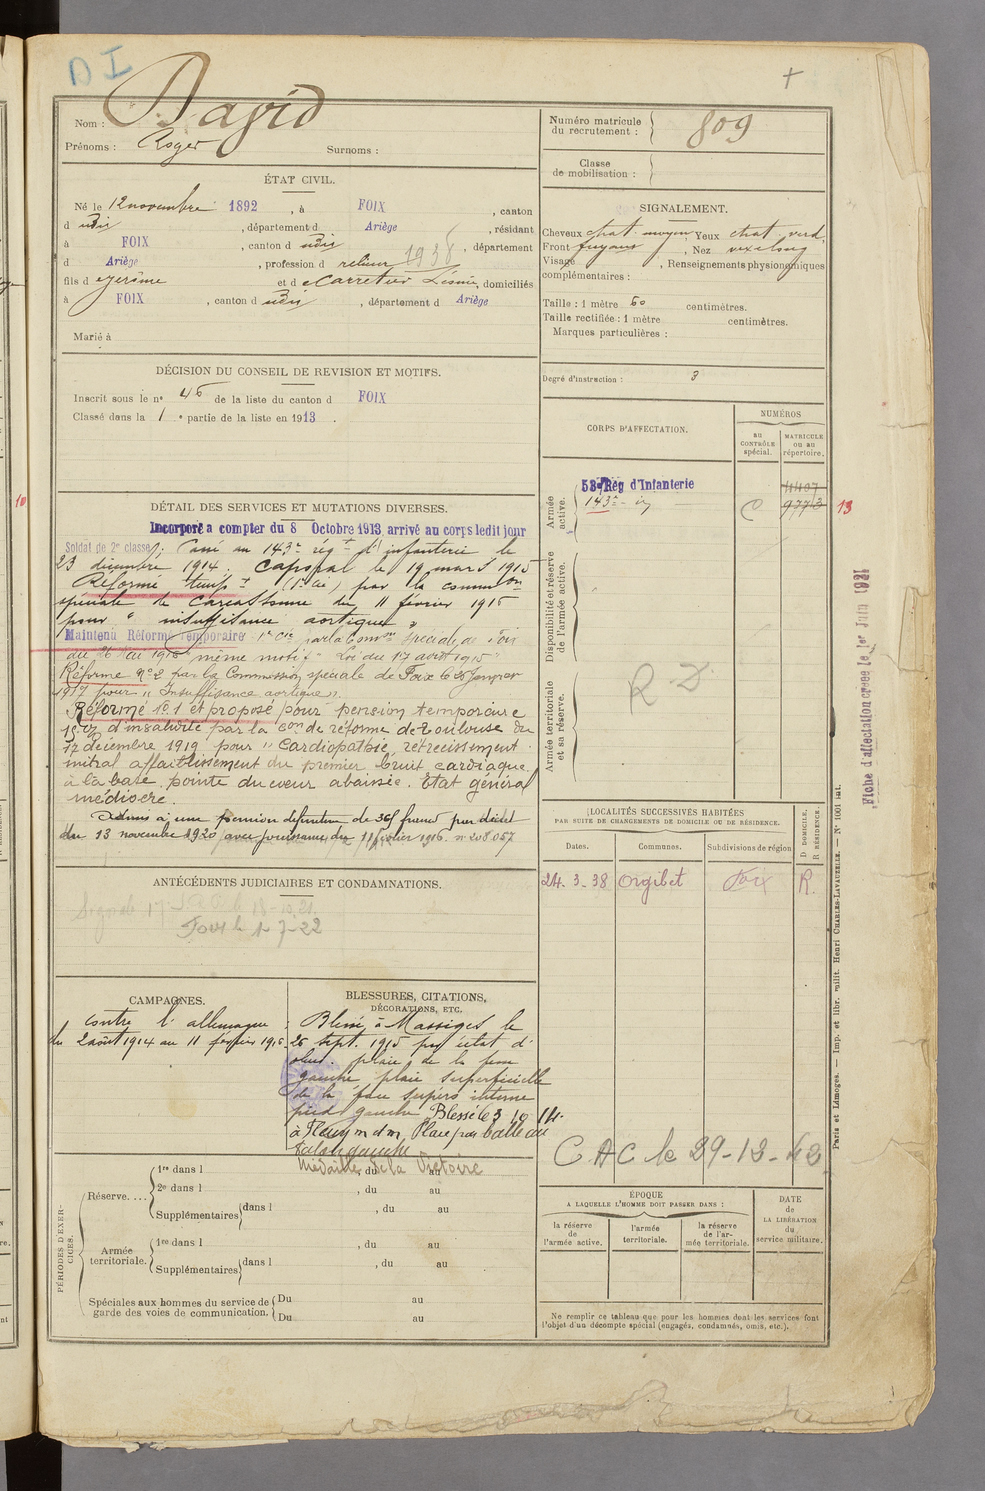 D I
+
Nom : David
Prénoms : Roger Surnoms :
Numéro matricule
du recrutement : 809
Classe
de mobilisation :
ÉTAT CIVIL.
Né le 12 novembre 1892, à FOIX, canton
d udis, département d Ariège, résidant
à FOIX, canton d udis, département
d Ariège, profession d relieur 1938
fils d Jérôme et d Carretier Lésmie, domiciliés
à FOIX, canton d udis, département d Ariège
Marié à
SIGNALEMENT.
Cheveux chat. moyen, Yeux chat verd.
Front fuyant, Nez rex long
Visage , Renseignements physionomiques
complémentaires :
Taille : 1 mètre 60 centimètres.
Taille rectifiée : 1 mètre centimètres.
Marques particulières :
Degré d'instruction : 3
DÉCISION DU CONSEIL DE REVISION ET MOTIFS.
Inscrit sous le n° 46 de la liste du canton d FOIX
Classé dans la 1e partie de la liste en 1913.
CORPS D'AFFECTATION.
NUMÉROS
au
CONTRÔLE
spécial.
MATRICULE
ou au
répertoire.
Armée
active.
53e Rég d'Infanterie
143e - in
4407
C 9773
13
10
Disponibilité et réserve
de l'armée active.
Armée territoriale
et sa réserve.
R. D.
Fiche d'affectation créée le 1er Juin 1921
DÉTAIL DES SERVICES ET MUTATIONS DIVERSES.
Incorporé a compter du 8 Octobre 1913 arrivé au corps ledit jour
Soldat de 2e classe. Passé au 143e régt d'infanterie le
23 décembre 1914. Caporal le 19 mars 1915
Réformé tempt (1e cie) par la commion
spéciale de Carcassonne du 11 février 1916
pour " insuffisance aortique "
Maintenu Réformé Temporaire 1e Cie par la Comon spéciale de Foix
du 26 Mai 1916 même motif - Loi du 17 août 1915
Réforme N° 2 par la Commission spéciale de Foix 6 25 Janvier
1917 pour " Insuffisance aortique ".
Réformé N° 1 et proposé pour pension temporaire
15 % d'invalidité par la Con de réforme de Toulouse du
17 décembre 1919 pour " Cardiopathie, retrecissement
mitral affaiblissement du premier bruit cardiaque
à la base. pointe du cœur abaissée. Etat général
médiocre.
Admis à une pension définitive de 36f francs par décret
du 13 novembre 1920 avec jouissance du 11 février 1916. n° 208.057
LOCALITÉS SUCCESSIVES HABITÉES
PAR SUITE DE CHANGEMENTS DE DOMICILE OU DE RÉSIDENCE.
D DOMICILE.
R RÉSIDENCE.
Dates. Communes. Subdivisions de région
24. 3 - 38 Orgibet Foix R.
ANTÉCÉDENTS JUDICIAIRES ET CONDAMNATIONS.
Foix le 1-7-22
CAMPAGNES.
Contre l'allemagne :
du 2 août 1914 au 11 février 1916.
BLESSURES, CITATIONS,
DÉCORATIONS, ETC.
Blessé à Massiges le
26 sept. 1915 par éclat d'
obus. plaie de la
gauche plaie superficielle
de la face supéro interne
pied gauche Blessé le 3 10 14.
à Plaie par balle au
talon gauche
Médaille de la Victoire
C A C le 29-12-42
PÉRIODES D'EXERCICES.
Réserve....
1re dans l , du au
2e dans l , du au
Supplémentaires dans l , du au
Armée
territoriale.
1re dans l , du au
Supplémentaires dans l , du au
Spéciales aux hommes du service de
garde des voies de communication.
Du au
Du au
ÉPOQUE
A LAQUELLE L'HOMME DOIT PASSER DANS :
DATE
de
LA LIBÉRATION
du
service militaire.
la réserve
de
l'armée active.
l'armée
territoriale.
la réserve
de l'ar-
mée territoriale.
Ne remplir ce tableau que pour les hommes dont les services font
l'objet d'un décompte spécial (engagés, condamnés, omis, etc.).
Paris et Limoges. — Imp. et libr. milit. Henri CHARLES-LAVAUZELLE. — N° 1001 bis.